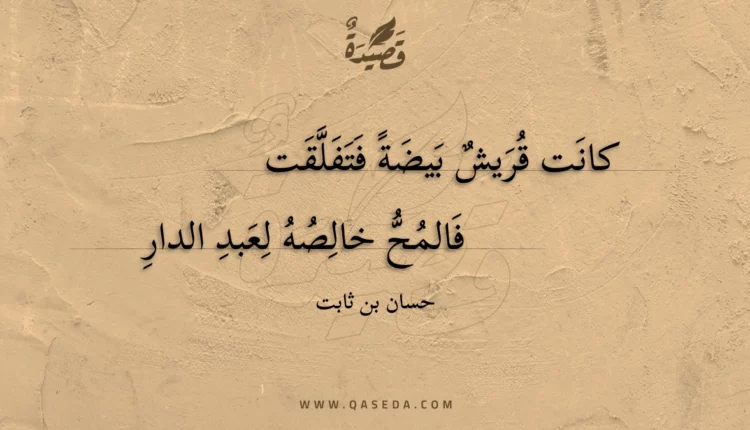 قَصِيدَةٌ
كانَت قُرَيشٌ بَيضَةً فَتَفَلَّقَت
فَالمُحُّ خالِصُهُ لِعَبدِ الدارِ
حسان بن ثابت
WWW.QASEDA.COM